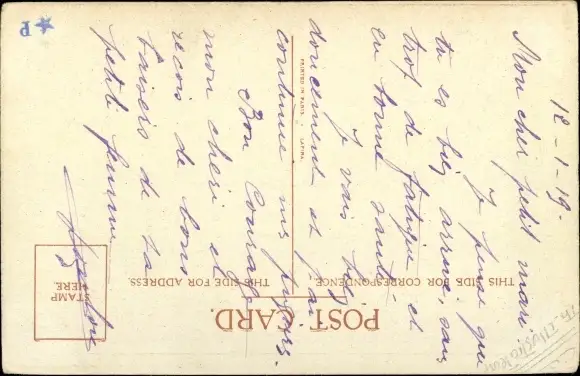 12-1-19.
Mon cher petit mari.
Je pense que
tu es bien arrivé, sans
trop de fatigue et
en bonne santé.
Je vais bien
doucement et j'ai
continue mes piqures.
Bon Courage
mon cheri et
recois de bons
baisers de ta
petite femme
POST CARD.
THIS SIDE FOR CORRESPONDENCE
THIS SIDE FOR ADDRESS.
STAMP
HERE
PRINTED IN PARIS. LAPINA.
P